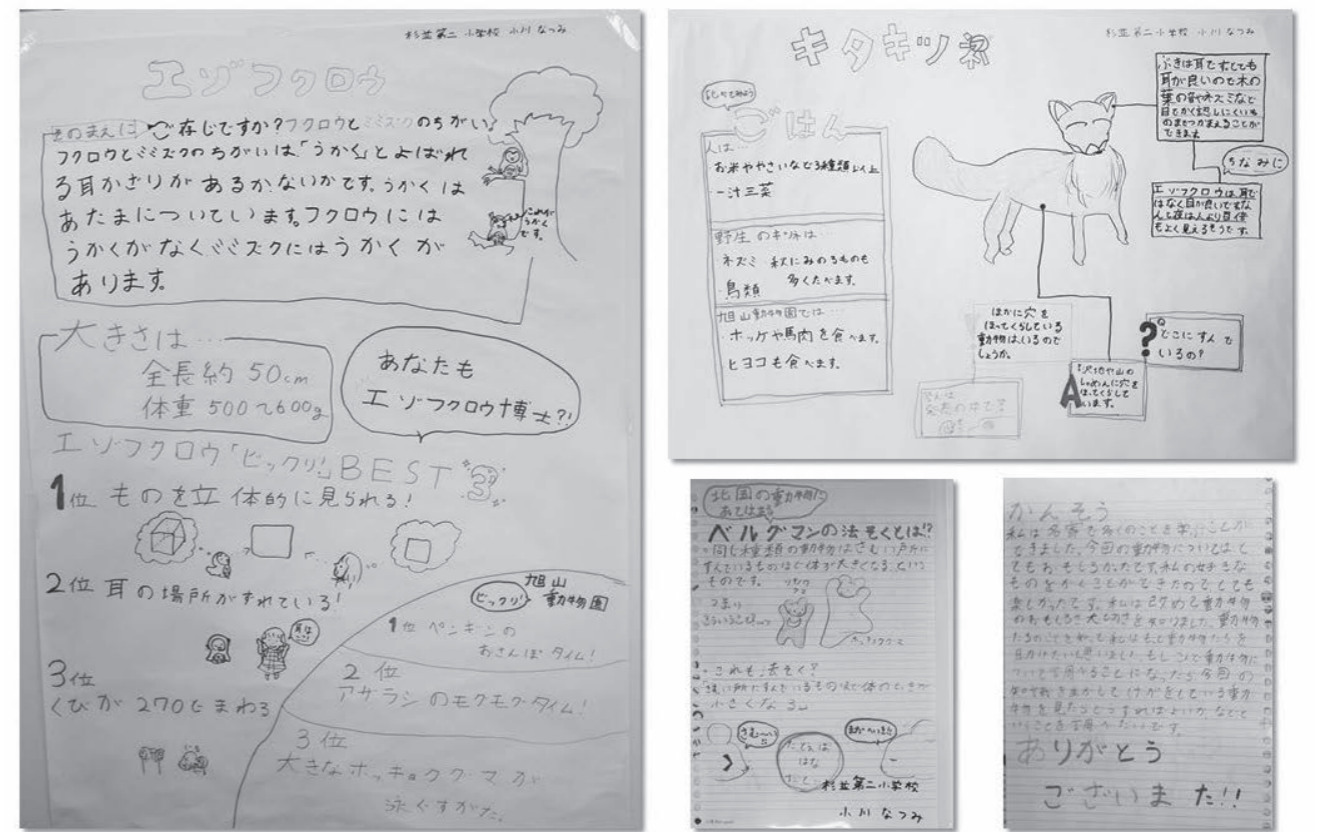 杉並第二小学校 小川なつみ
エゾフクロウ
そのまえに ご存じですか?フクロウとミミズクのちがい
フクロウとミミズクのちがいは「うかく」とよばれ
る耳かざりがあるかないかです。うかくは
あたまについています。フクロウには
うかくがなくミミズクにはうかくが
あります。
これが
うかく
です。
大きさは…
全長約50cm
体重500〜600g
あなたも
エゾフクロウ博士?!
エゾフクロウ「ビックリ!」BEST3
1位 ものを立体的に見られる!
2位 耳の場所がずれている!
耳は
3位
くびが270°まわる
旭山
動物園
ビックリ!
1位 ペンギンの
おさんぽタイム!
2位
アザラシのモグモグタイム!
3位
大きなホッキョクグマが
泳ぐすがた。
杉並第二小学校 小川なつみ
キタキツネ
ごはん
人は…
・お米ややさいなど3種類以上
・一汁三菜
野生のキツネは…
・ネズミ 秋にみのるものも
多くたべます。
・鳥類
旭山動物園では…
・ホッケや馬肉を食べます。
ヒヨコも食べます。
ぶきは耳です。とても
耳が良いので木の
葉の音やネズミなど
目でかく認しにくいも
のまでつかまえることが
できます。
ちなみに
エゾフクロウは、耳で
はなく目が良いですな
んと夜は人より百倍
もよく見えるそうです。
ほかに穴を
ほってくらしている
動物はいるので
しょうか。
?
Q
どこにすんで
いるの?
A
沢地や山の
しゃめんに穴を
ほってくらして
います。
北国の動物に
あてはまる
ベルグマンの法そくとは!?
・同じ種類の動物はさむい所に
すんでいるものほど体が大きくなる。という
ものです。
つまり
こういうこと
ヒグマ
ホッキョクグマ
・これも法そく?
小さくなる
さむ〜い
たとえば
はな
杉並第二小学校
小川なつみ
かんそう
私は名寄で多くのことを学ぶことが
できました。今回の動物についてはとて
もおもしろかったです。私の好きな
ものをかくことができたのでとても
楽しかったです。私は改めて動物
のおもしろさ大切さを知りました。動物
たちのことを知って私はもっと動物たちを
ありがとう
ございました!!